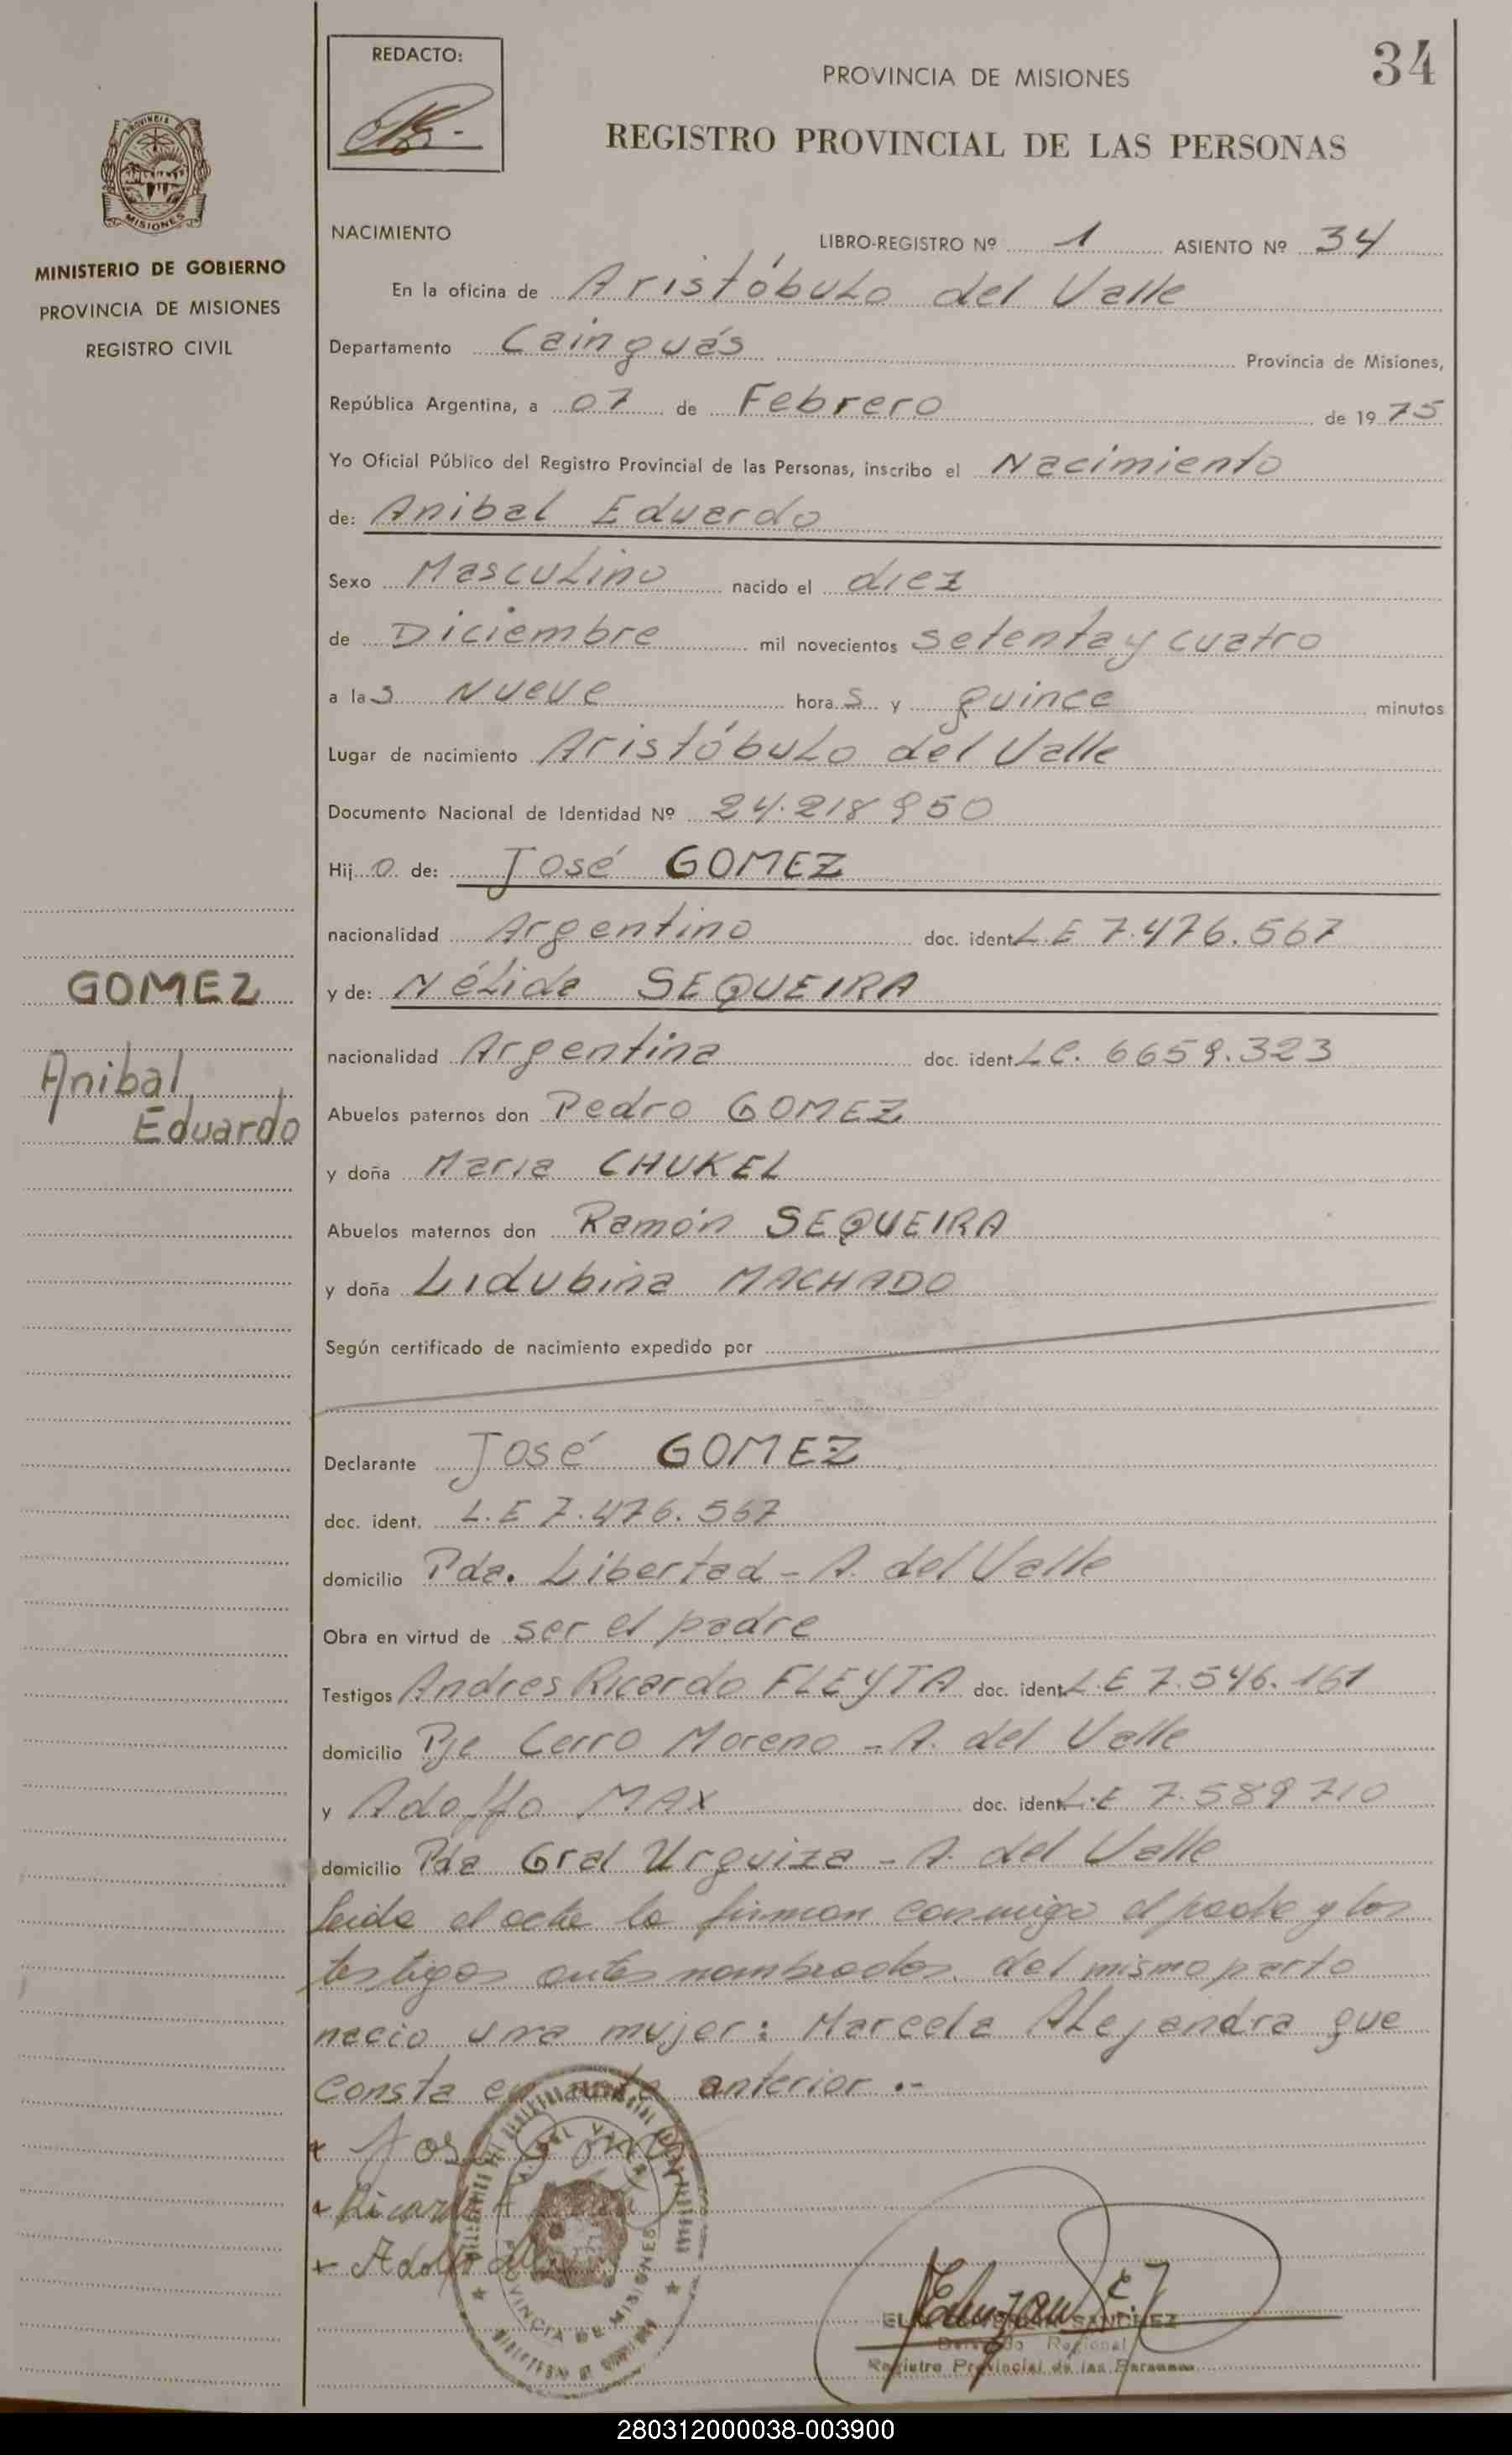 34
REDACTO:
PROVINCIA DE MISIONES
REGISTRO PROVINCIAL DE LAS PERSONAS
PROVINCIA DE
MISIONES
MINISTERIO DE GOBIERNO
PROVINCIA DE MISIONES
REGISTRO CIVIL
NACIMIENTO LIBRO-REGISTRO Nº 1 ASIENTO Nº 34
En la oficina de Aristóbulo del Valle
Departamento Cainguás Provincia de Misiones,
República Argentina, a 07 de Febrero de 1975
Yo Oficial Público del Registro Provincial de las Personas, inscribo el Nacimiento
de: Anibal Eduardo
Sexo Masculino nacido el diez
de Diciembre mil novecientos setenta y cuatro
a las Nueve horas y quince minutos
Lugar de nacimiento Aristóbulo del Valle
Documento Nacional de Identidad Nº 24.218950
Hijo de: José GOMEZ
nacionalidad Argentino doc. ident. L.E 7.476.567
y de: Nélida SEQUEIRA
nacionalidad Argentina doc. ident. LC. 6659.323
GOMEZ
Anibal
Eduardo
Abuelos paternos don Pedro GOMEZ
y doña Maria CHUKEL
Abuelos maternos don Ramón SEQUEIRA
y doña Lidubina MACHADO
Según certificado de nacimiento expedido por
Declarante José GOMEZ
doc. ident. L.E 7.476.567
domicilio Pda. Libertad - A. del Valle
Obra en virtud de ser el padre
Testigos Andres Ricardo FLEYTA doc. ident. L.E 7.546.161
domicilio Pje Cerro Moreno - A. del Valle
y Adolfo MAX doc. ident. L.E 7.589710
domicilio Pda Gral Urquiza - A. del Valle
Leida el acta la firman conmigo el padre y los
testigos antes nombrados. del mismo parto
nacio una mujer: Marcela Alejandra que
consta en acta anterior .-
José
Ricardo
Adolfo
PROVINCIA DE MISIONES
SANCHEZ
Delegado Regional
Registro Provincial de las Personas
280312000038-003900